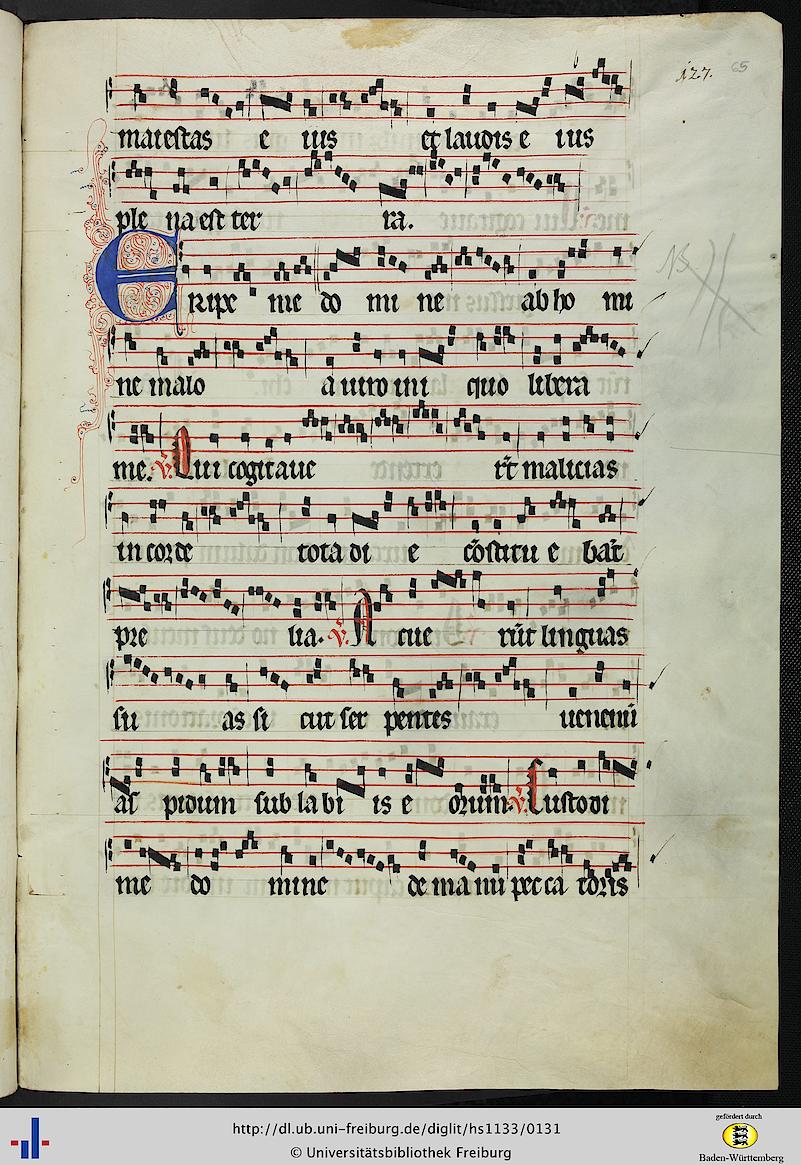 127. 65
maiestas e ius et laudis e ius
ple na est ter ra.
Eripe me do mi ne ab ho mi
ne malo a uiro ini quo libera
me. v. Qui cogitaue rūt malicias
in corde tota di e cōstitu e bāt
pre lia. v. Acue rūt linguas
su as si cut ser pentes uenenū
as pidum sub la bi is e orum. v. Custodi
me do mine de ma nu pec ca toris
http://dl.ub.uni-freiburg.de/diglit/hs1133/0131
© Universitätsbibliothek Freiburg
gefördert durch
Baden-Württemberg